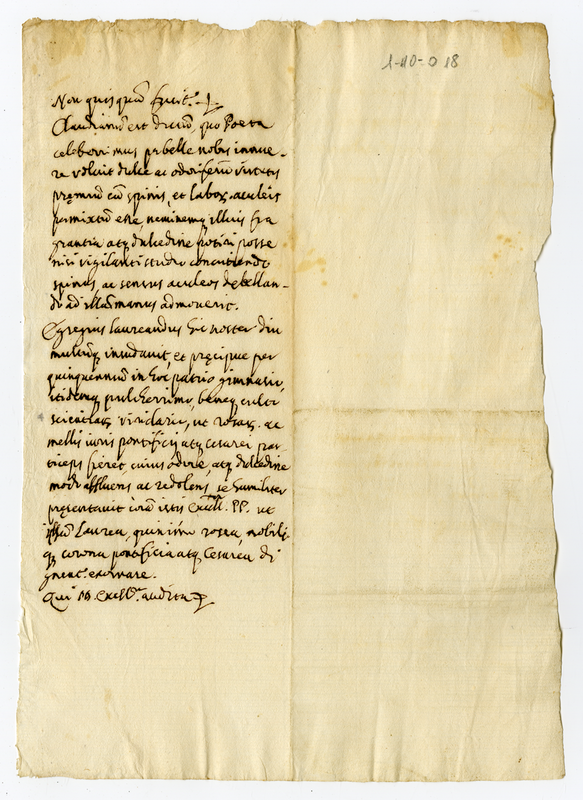 1-40-018
Non quisquā fruit.r
Claudiani est dictū, quo Poeta
celeberrimus perbelle nobis innue-
re voluit dulce ac odoriferū virtutis
pręmiū cū spinis, et labor. aculeis
permixtū esse neminemq illius fra
grantia atq dulcedine potiri posse
nisi vigilanti studio concutiendo
spinas, ac sensus aculeos debellan-
do ad manus admoverit.
Egregius laureandus hic noster diu
multūq insudavit, et pręcipue per
quinquenniū in hoc patrio gimnasio,
itidemq pulcherrimo, beneq culto
scientiarū viridario, ut rosarū ac
mellis iuris pontificij atq cesarei par
ticeps fieret, cuius odore, atq dulcedine
modo affluens ac redolens, se humiliter
pręsentavit corā istis Excell. PP. ut
ipsū Laurea, quinimo rosea, nobili-
q corona pontificia atq Cesarea di
gnent. exornare.
Qui Excell. audita